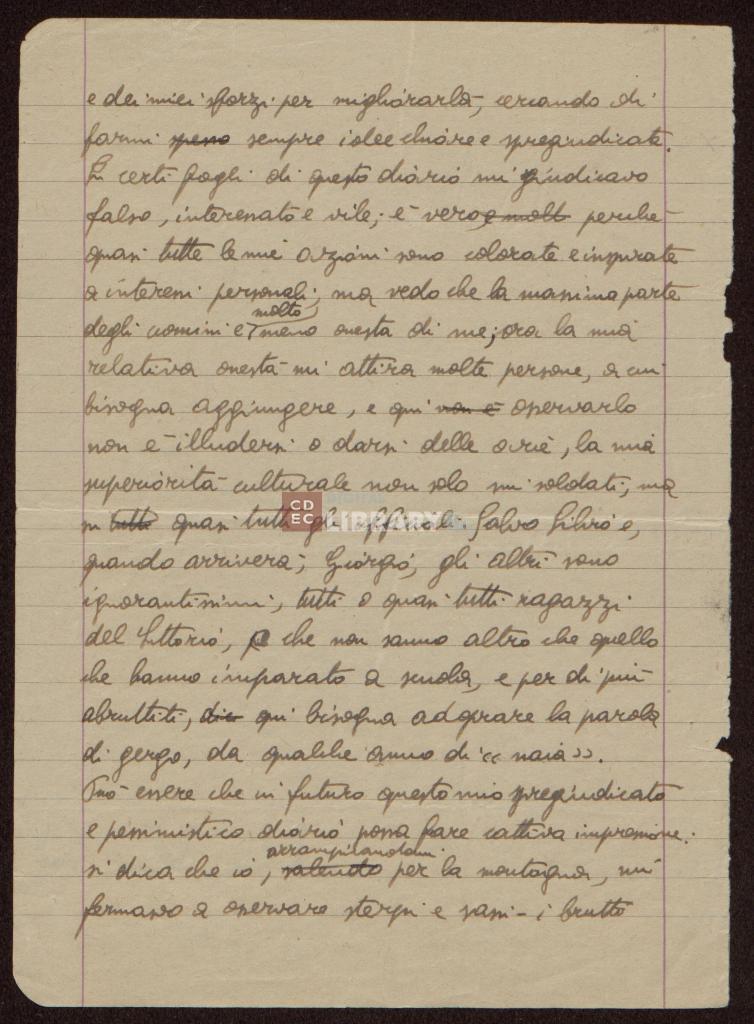 e dei miei sforzi per migliorarla, cercando di
farmi spesso sempre idee chiare e spregiudicate.
In certi fogli di questo diario mi giudicavo
falso, interessato e vile; è vero, e molt perchè
quasi tutte le mie azioni sono colorate e inspirate
a interessi personali; ma vedo che la massima parte
molto
degli uomini è meno onesta di me; ora la mia
relativa onestà mi attira molte persone, a cui
bisogna aggiungere, e qui non è osservarlo
non è illudersi o darsi delle arie, la mia
superiorità culturale non solo sui soldati, ma
su tutti quasi tutti gli ufficiali. Salvo Silvio e,
quando arriverà, Giorgio, gli altri sono
ignorantissimi, tutti o quasi tutti ragazzi
del Littorio, che non sanno altro che quello
che hanno imparato a scuola, e per di più
abruttiti, dic qui bisogna adoprare la parola
di gergo, da qualche anno di "naia".
Può essere che in futuro questo mio spregiudicato
e pessimistico diario possa fare cattiva impressione:
arrampicandomi
si dica che io, salendo per la montagna, mi
fermavo a osservare sterpi e sassi - i brutto
CDEC
DIGITAL
LIBRARY